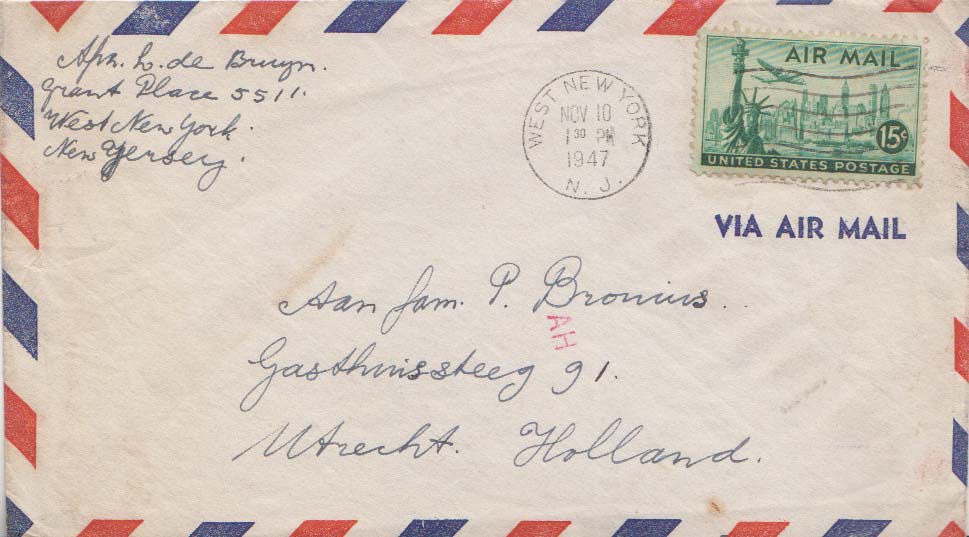 Afz. L. de Bruyn.
Grant Place 5511.
West New York.
New Yersey.
WEST NEW YORK
NOV 10
1 30 PM
1947
N. J.
AIR MAIL
15¢
UNITED STATES POSTAGE
VIA AIR MAIL
Aan fam. P. Bronius.
AH
Gasthuissteeg 91.
Utrecht. Holland.